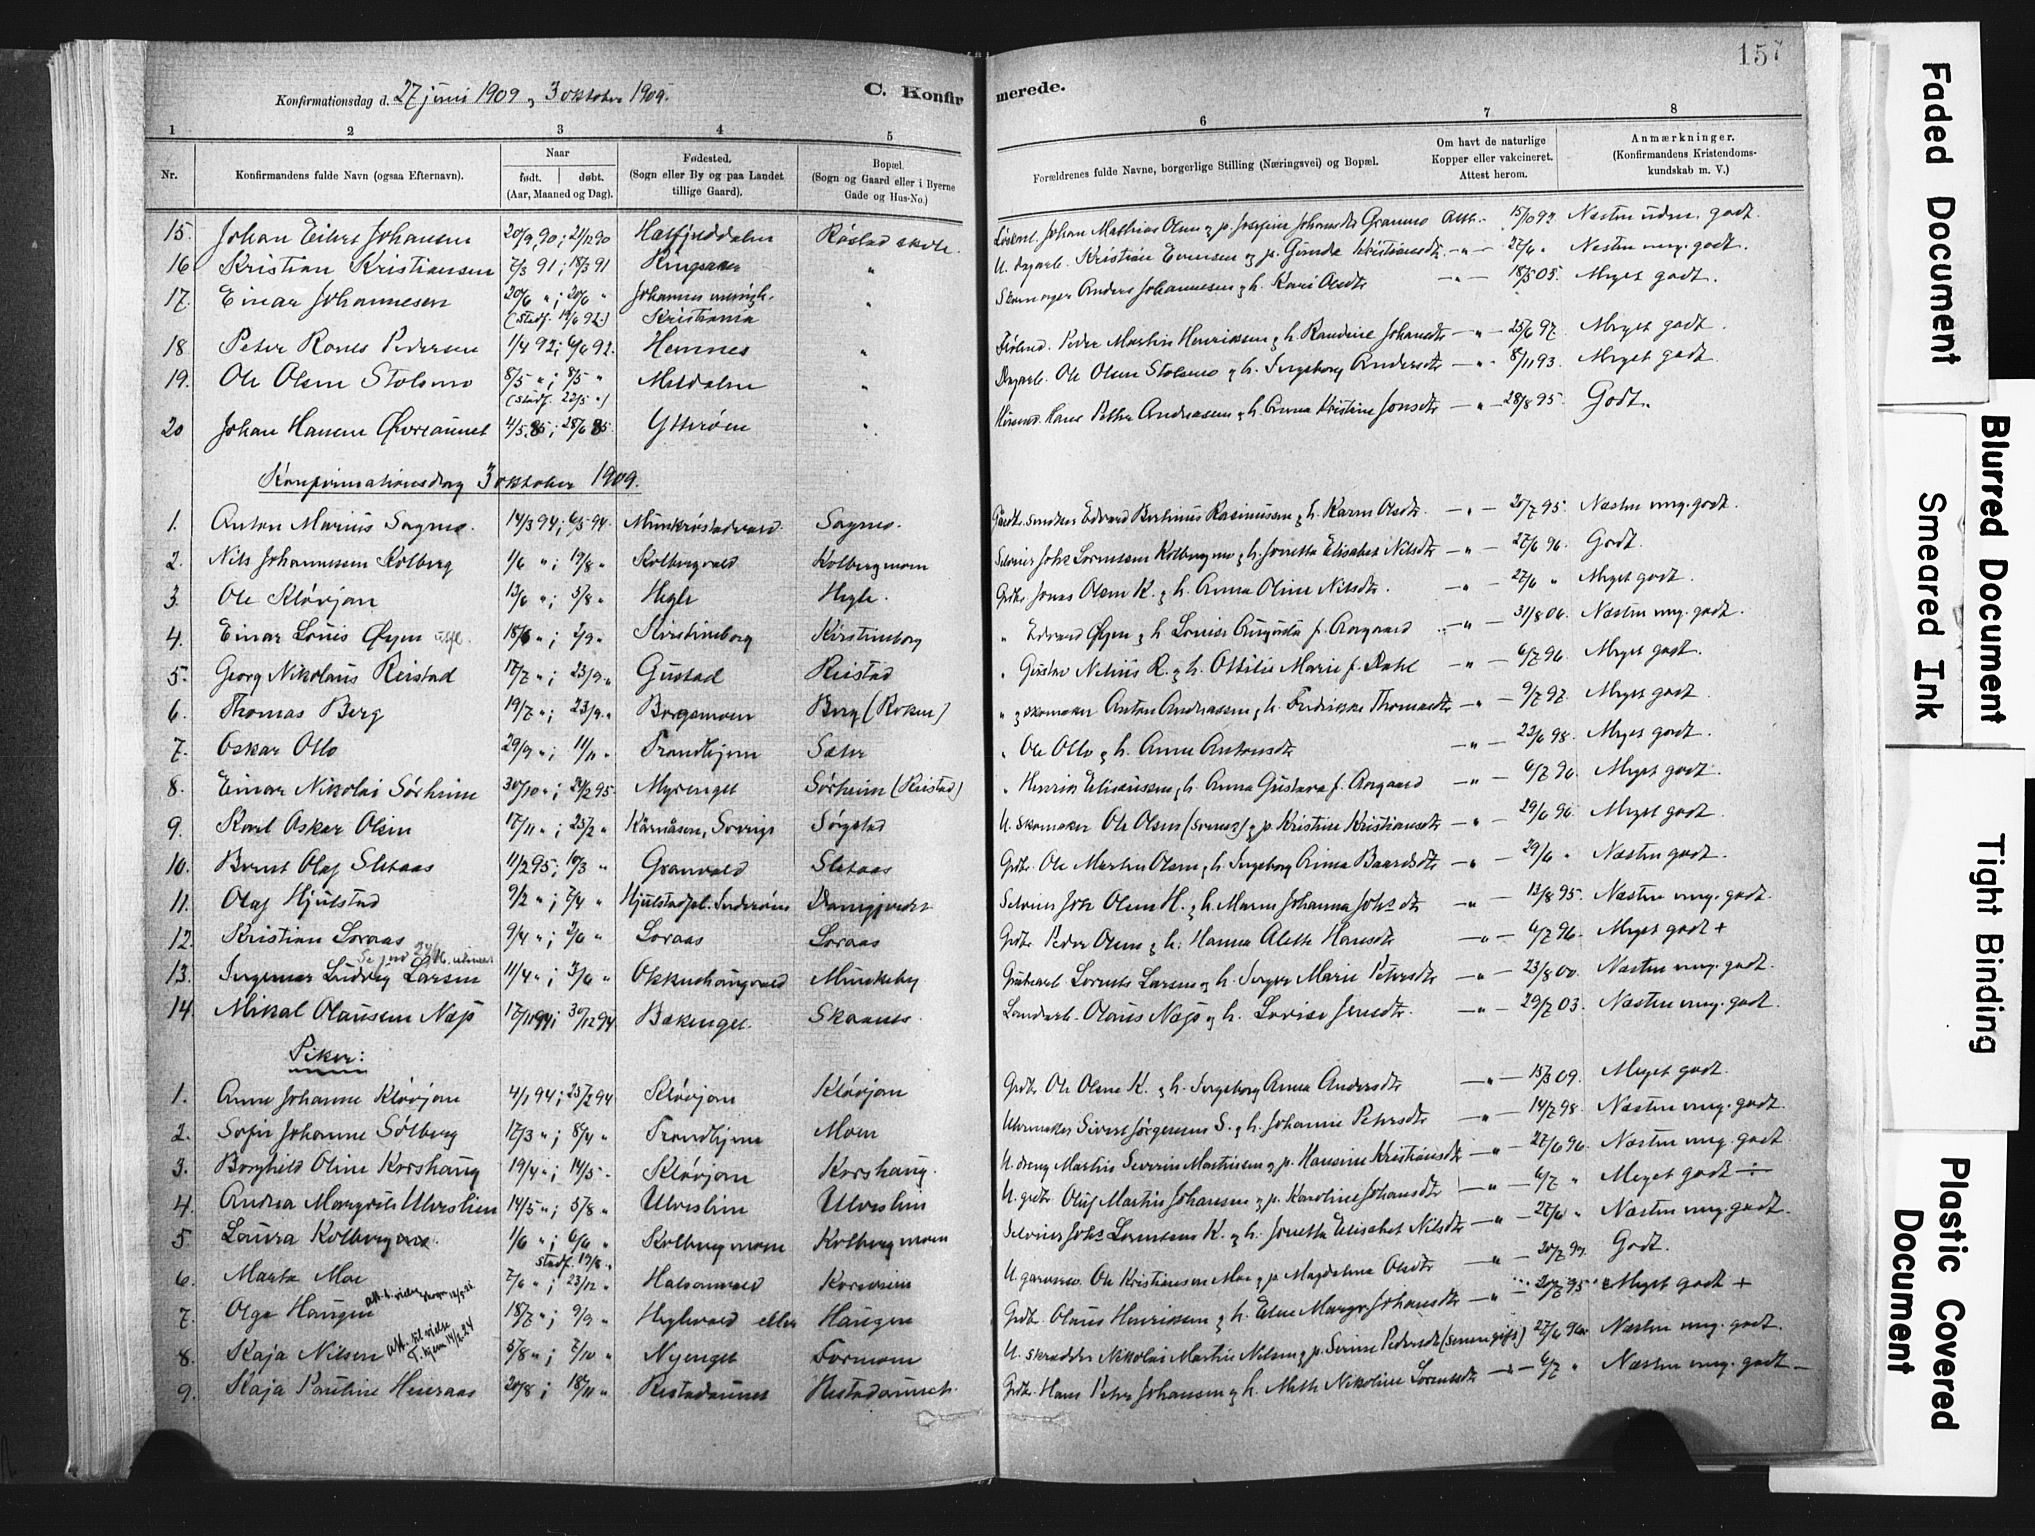 157
Konfirmationsdag d. 27 juni 1909 og 3 oktober 1909.
C. Konfirmerede.
1 2 3 4 5 6 7 8
Nr.
Konfirmandens fulde Navn (ogsaa Efternavn).
Naar
født. døbt.
(Aar, Maaned og Dag).
Fødested.
(Sogn eller By og paa Landet
tillige Gaard).
Bopæl.
(Sogn og Gaard eller i Byerne
Gade og Hus-No.)
Forældrenes fulde Navne, borgerlige Stilling (Næringsvei) og Bopæl.
Om havt de naturlige
Kopper eller vakcineret.
Attest herom.
Anmærkninger.
(Konfirmandens Kristendoms-
kundskab m. V.)
15. Johan Eilert Johansen 20/9 90; 21/12 90 Hatfjelddalen Røstad skole. Johan Mathias Olsen og p. Josefine Johansdtr Granmo Att. Næsten udm. godt.
16 Kristian Kristiansen 7/3 91; 18/3 91 Ringsaker " U. dagarb. Kristian Evensen og p. Gunda Kristiansdtr — " — 27/6 " Næsten meg. godt.
17. Einar Johannesen 20/6 "; 20/6 " Johannes menigh. "
(stadf. 19/6 92) Kristiania
Skomager Anders Johannesen og h. Kari Olsdtr — " — 18/5 05. Meget godt.
18 Peter Rones Pedersen 1/4 92; 6/6 92. Hemnes " Peder Martin Henriksen og h. Randine Johansdtr — " — 25/6 97. Meget godt.
19. Ole Olsen Stolsmo 8/5 "; 8/5 " Meldalen "
(stadf. 22/5 ")
Dagarb. Ole Olsen Stolsmo og h. Ingeborg Andersdtr — " — 8/11 93. Meget godt.
20 Johan Hansen Øvreaunet 4/5 85; 28/6 85. Ytterøen " Hans Petter Andreasen og h. Anna Kristine Jonsdtr — " — 28/8 95. Godt.
Konfirmationsdag 3 oktober 1909.
1. Anton Marius Sagmo. 14/3 94; 6/5 94. Munkrøstadvald Sagmo. Edvard Bertinus Rasmussen og h. Karen Olsdtr. — " — 20/7 95. Næsten meg. godt.
2. Nils Johannesen Kolberg 1/6 "; 19/8 " Kolbergvald Kolbergmoen Selveier Johs Lorentsen Kolbergmo og h. Jonetta Elisabet Nilsdtr — " — 27/6 96. Godt.
3. Ole Kløvjan 13/6 "; 5/8 " Hegle Hegle. Grdbr. Jonas Olsen K. og h. Anna Oline Nilsdtr. — " — 27/6 " Meget godt.
4. Einar Louis Øyen 18/6 "; 2/9 " Kirstineborg Kirstineborg " Edvard Øyen og h. Louise Augusta f. Aargaard — " — 31/8 06. Næsten meg. godt.
5. Georg Nikolaus Reistad 17/7 "; 23/9 " Gustad Reistad " Gustav Nelius R. og h. Ottilie Marie f. Dahl — " — 6/7 96. Meget godt.
6. Thomas Berg 19/7 "; 23/9 " Borgsmoen Berg (Roken) " og skomaker Anton Andreassen og h. Fredrikke Thomasdtr — " — 9/7 97. Meget godt.
7. Oskar Ollo 29/9 "; 11/11 " Trondhjem Sæter " Ole Ollo og h. Anne Antonsdtr — " — 22/6 98. Meget godt.
8. Einar Nikolai Sørheim 30/10 "; 24/2 95. Myrenget Sørheim (Reistad) " Henrik Eliasussen og h. Anna Gustava f. Aargaard — " — 6/7 96. Meget godt.
9. Karl Oskar Olsen 17/11 "; 23/2 " Kårnåsen, Sverige Sørgstad U. skomaker Ole Olsen og p. Kristine Kristiansdtr — " — 29/6 96. Meget godt.
10. Bernt Olaf Sletaas 11/2 95; 10/3 " Granvald Sletaas Grdbr. Ole Martin Olsen og h. Ingeborg Anna Baardsdtr — " — 29/6 " Næsten godt.
11. Olaf Hjulstad 9/2 "; 7/4 " Hjulstadpl. Inderøen Selveier Johs Olsen H. og h. Maren Johanna Johs dtr — " — 13/8 95. Næsten meg. godt.
12. Kristian Loraas 9/4 "; 3/6 " Loraas Loraas Grdbr Peder Olsen og h. Hanna Alette Hansdtr — " — 6/7 96. Meget godt +
13. Ingemar Ludvig Larsen 11/4 "; 3/6 " Okkenhaugvald Munkeby Lorents Larsen og h. Marie Petersdtr — " — 23/8 00. Næsten meg. godt.
14 Mikal Olausen Næss 17/11 94; 30/12 94 Bækenget Skaanes. Landarb. Olaus Næss og h. Lovise Jensdtr. — " — 29/7 03. Næsten meg. godt.
Piker:
1. Anne Johanne Kløvjan 4/1 94; 25/2 94 Kløvjan Kløvjan Grdbr. Ole Olsen K. og h. Ingeborg Anna Andersdtr — " — 15/3 09. Meget godt.
2. Sofie Johanne Solberg 17/3 "; 8/4 " Trondhjem Moen Urmaker Sivert Jørgensen S. og h. Johanne Petersdtr — " — 14/7 98. Næsten meg. godt.
3. Borghild Oline Korshaug 19/4 "; 14/5 " Kløvjan Korshaug. U. dreng Martin Severin Martinsen og p. Hansine Kristiansdtr — " — 27/6 96. Næsten meg. godt
4 Andrea Margrete Ulvestien 14/5 "; 5/8 " Ulvestien Ulvestien U. grdbr. Oluf Martin Johansen og p. Karoline Johansdtr — " — 6/7 " Meget godt ÷
5 Laura Kolbergmo. 1/6 "; 6/6 " Kolbergmoen Kolbergmoen
stadf. 19/8 "
Selveier Johs Lorentsen K. og h. Jonetta Elisabet Nilsdtr — " — 27/6 " Næsten meg. godt.
6. Marta Moe 7/6 "; 23/12 " Halsanvald U. Ole Kristiansen Moe og p. Magdalena Olsdtr " — 20/7 99. Godt.
7. Olga Haugen 18/7 "; 9/9 " Heglevald eller Haugen Grdbr. Olaus Henriksen og h. Elen Margr. Johansdtr — " — 20/7 95 Meget godt +
8. Kaja Nilsen att. til vielse T.hjem 14/1 24 5/8 "; 7/10 " Nyenget Formoen U. skrædder Nikolai Martin Nilsen og p. Serine Pedersdtr (senere gift) 27/6 96. Næsten meg. godt.
9. Kaja Pauline Heieraas 20/8 ; 18/11 " Reistadaunet Reistadaunet. Grdbr. Hans Peter Johansen og h. Mette Nikoline Lorentsdtr — " — 6/7 " Næsten meg. godt —
Faded Document
Blurred Document
Smeared Ink
Tight Binding
Plastic Covered
Document